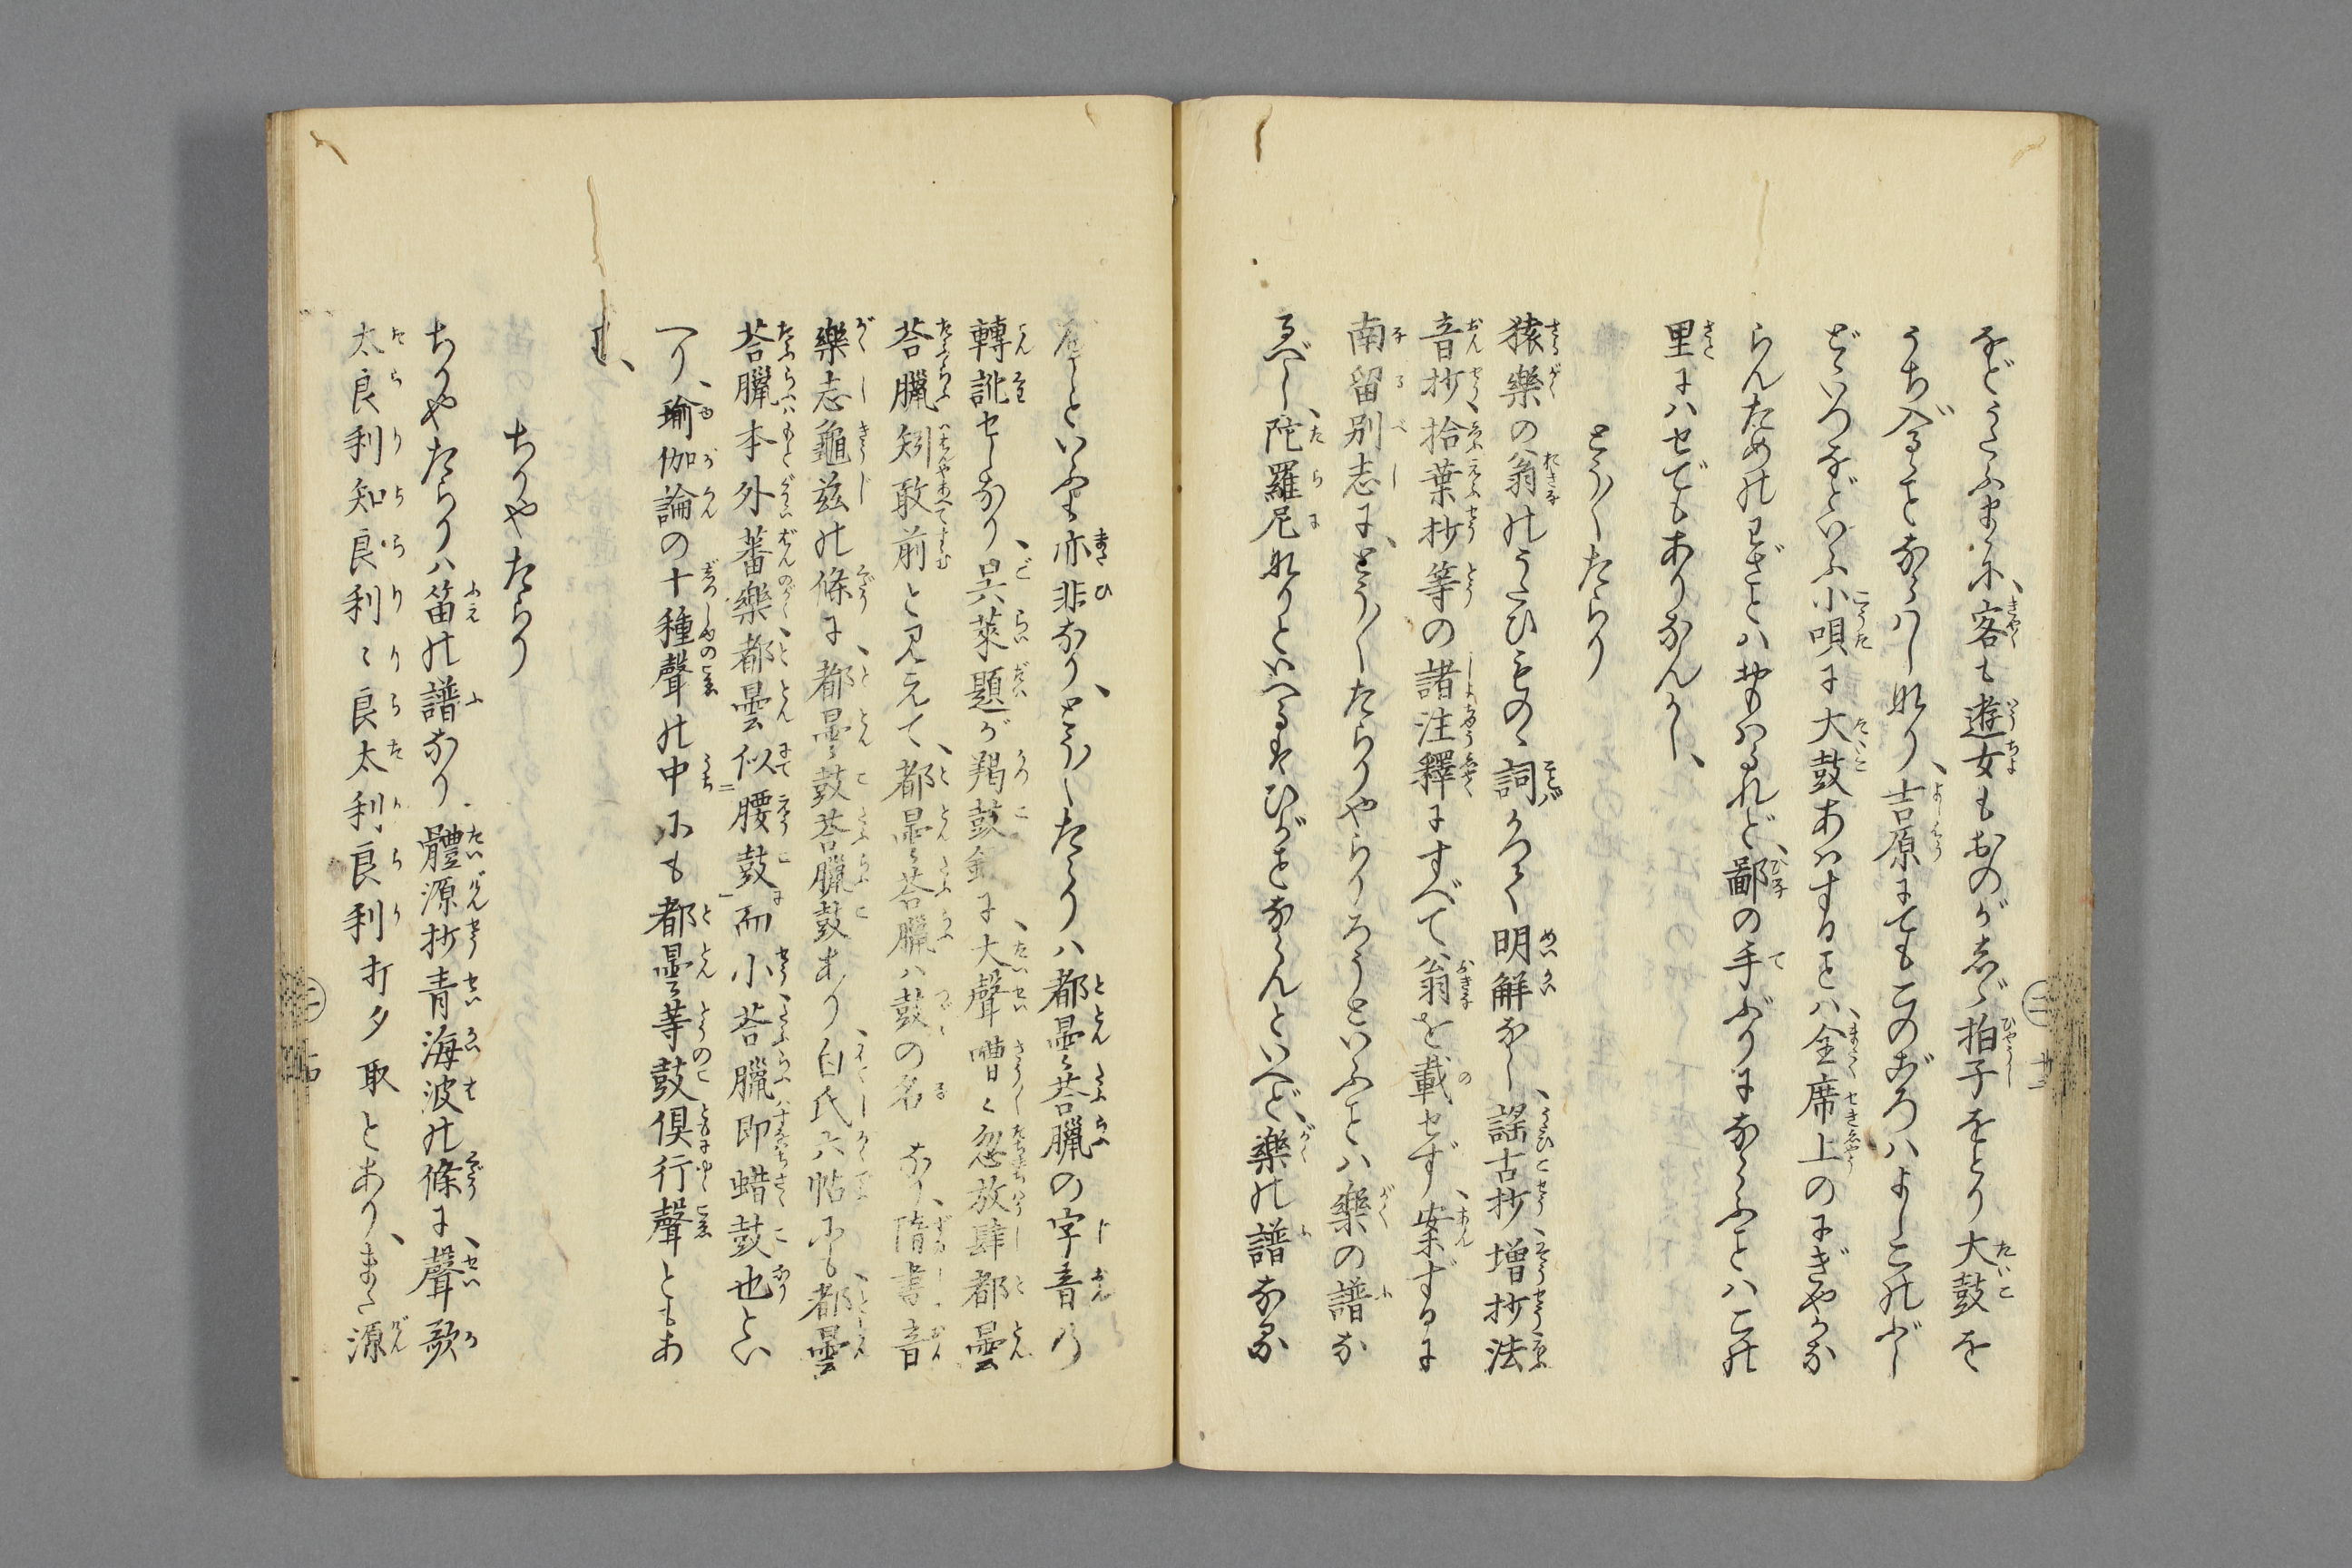 などうたふまに、客も遊女もおのがじゝ拍子をとり大鼓を
うち入ることならはしなり、吉原にてもこのごろハよしこのぶし
どゝいつなどいふ小唄に大鼓あハすることハ、全席上のにぎやかな
らんためのわざとハおもハるれど、鄙の手ぶりにならふことハこの
里にハせでもありなんかし、
とう〳〵たらり
猿樂の翁のうたひものゝ詞かつて明解なし、謡古抄、増抄法
音抄、拾葉抄等の諸注釋にすべて翁を載せず、案ずるに
南留別志に、とう〳〵たらりやらりろうといふことハ樂の譜な
るべし、陀羅尼なりといへるはひがことならんといへど、樂の譜なる
べしといふも亦非なり、とう〳〵たらりハ都曇荅臘の字音の
轉訛せしなり、呉萊題が羯鼓録に、大聲嘈々忽放肆都曇
荅臘矧敢前と見えて、都曇荅臘ハ鼓の名なり、隋書音
樂志龜茲の條に、都曇鼓荅臘鼓あり、白氏六帖にも、都曇
荅臘本外蕃樂、都曇似腰鼓而小、荅臘即蜡鼓也とい
へり、瑜伽論の十種聲の中にも都曇等鼓倶行聲ともあ
り、
ちりやたらり
ちりやたらりハ笛の譜なり、體源抄青海波の條に、聲歌
太良利知良利々良太利良利打夕取とあり、また源